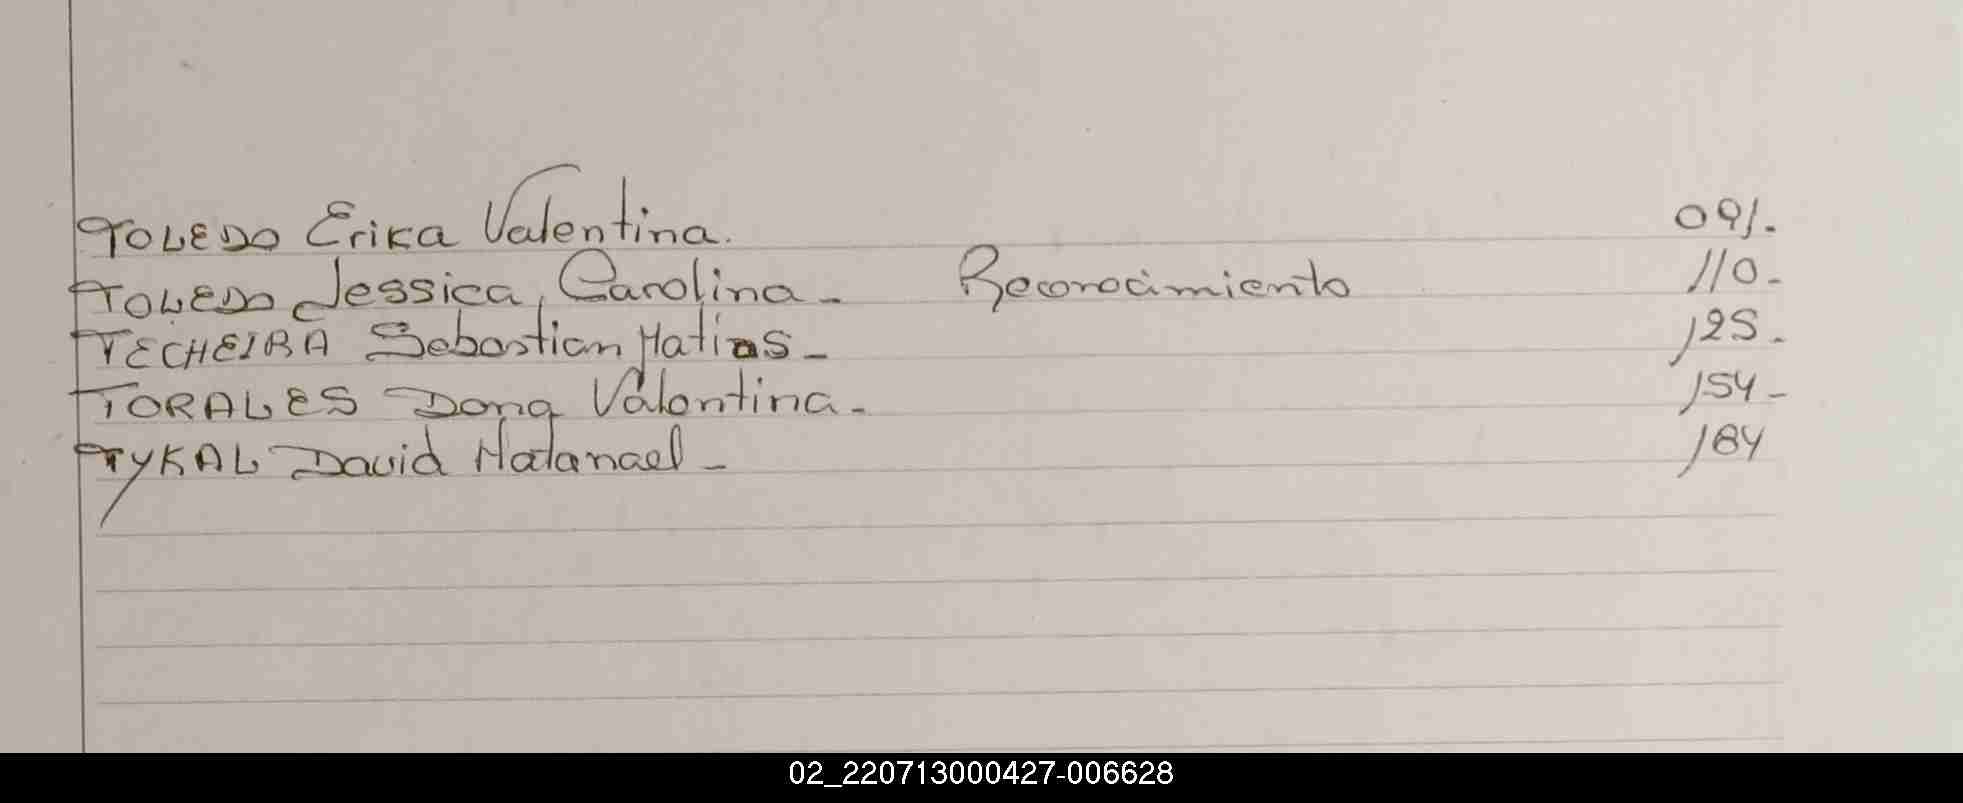 TOLEDO Erika Valentina. 091.
TOLEDO Jessica, Carolina - Reconocimiento 110.
TECHEIRA Sebastian Matias - 125.
TORALES Dana Valentina. 154-
TYKAL David Natanael - 184
02_220713000427-006628